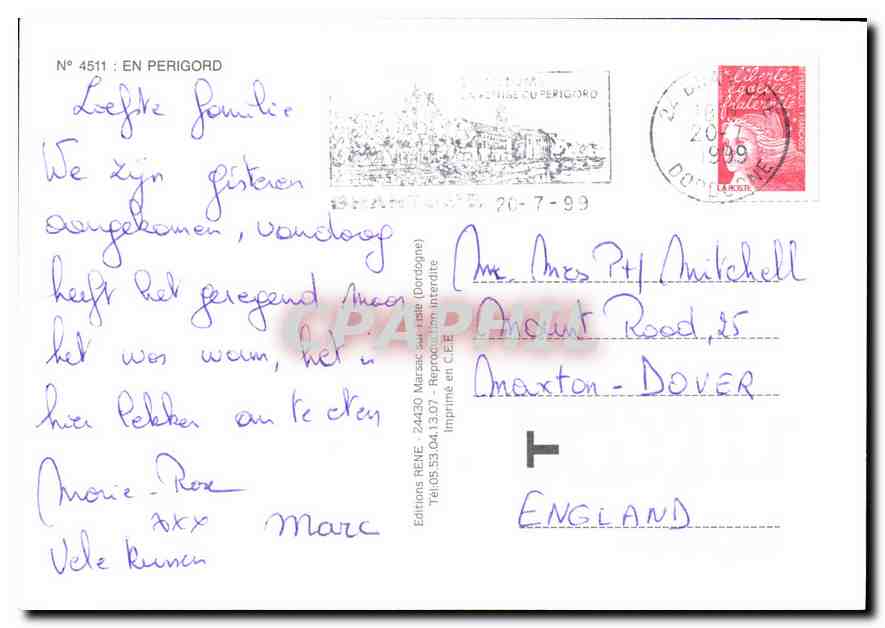 N° 4511 : EN PERIGORD
Liefste familie
We zijn gisteren
aangekomen, vandaag
heeft het geregend maar
het was warm, het is
hier lekker om te eten
Marie-Rose
xxx Marc
Vele kussen
VENISE DU PERIGORD
20-7-99
24
20-7
1999
DORDOGNE
liberté
égalité
fraternité
LA POSTE
Mr. Mrs P+J Mitchell
Mount Road, 25
Maxton - DOVER
T
ENGLAND
Editions RENE - 24430 Marsac sur l'Isle (Dordogne)
Tél:05.53.04.13.07 - Reproduction interdite
Imprimé en C.E.E
CPAPHIL